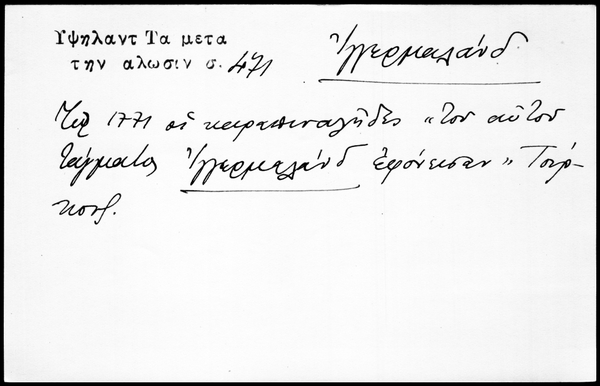 Υψηλαντ Τα μετα
την αλωσιν σ. 471
Ἰγγερμαλάνδ
Τῷ 1771 οἱ καραμπιναλῆδες "τοῦ αὐτοῦ
τάγματος Ἰγγερμαλάνδ ἐφόνευσαν" Τούρ-
κους.